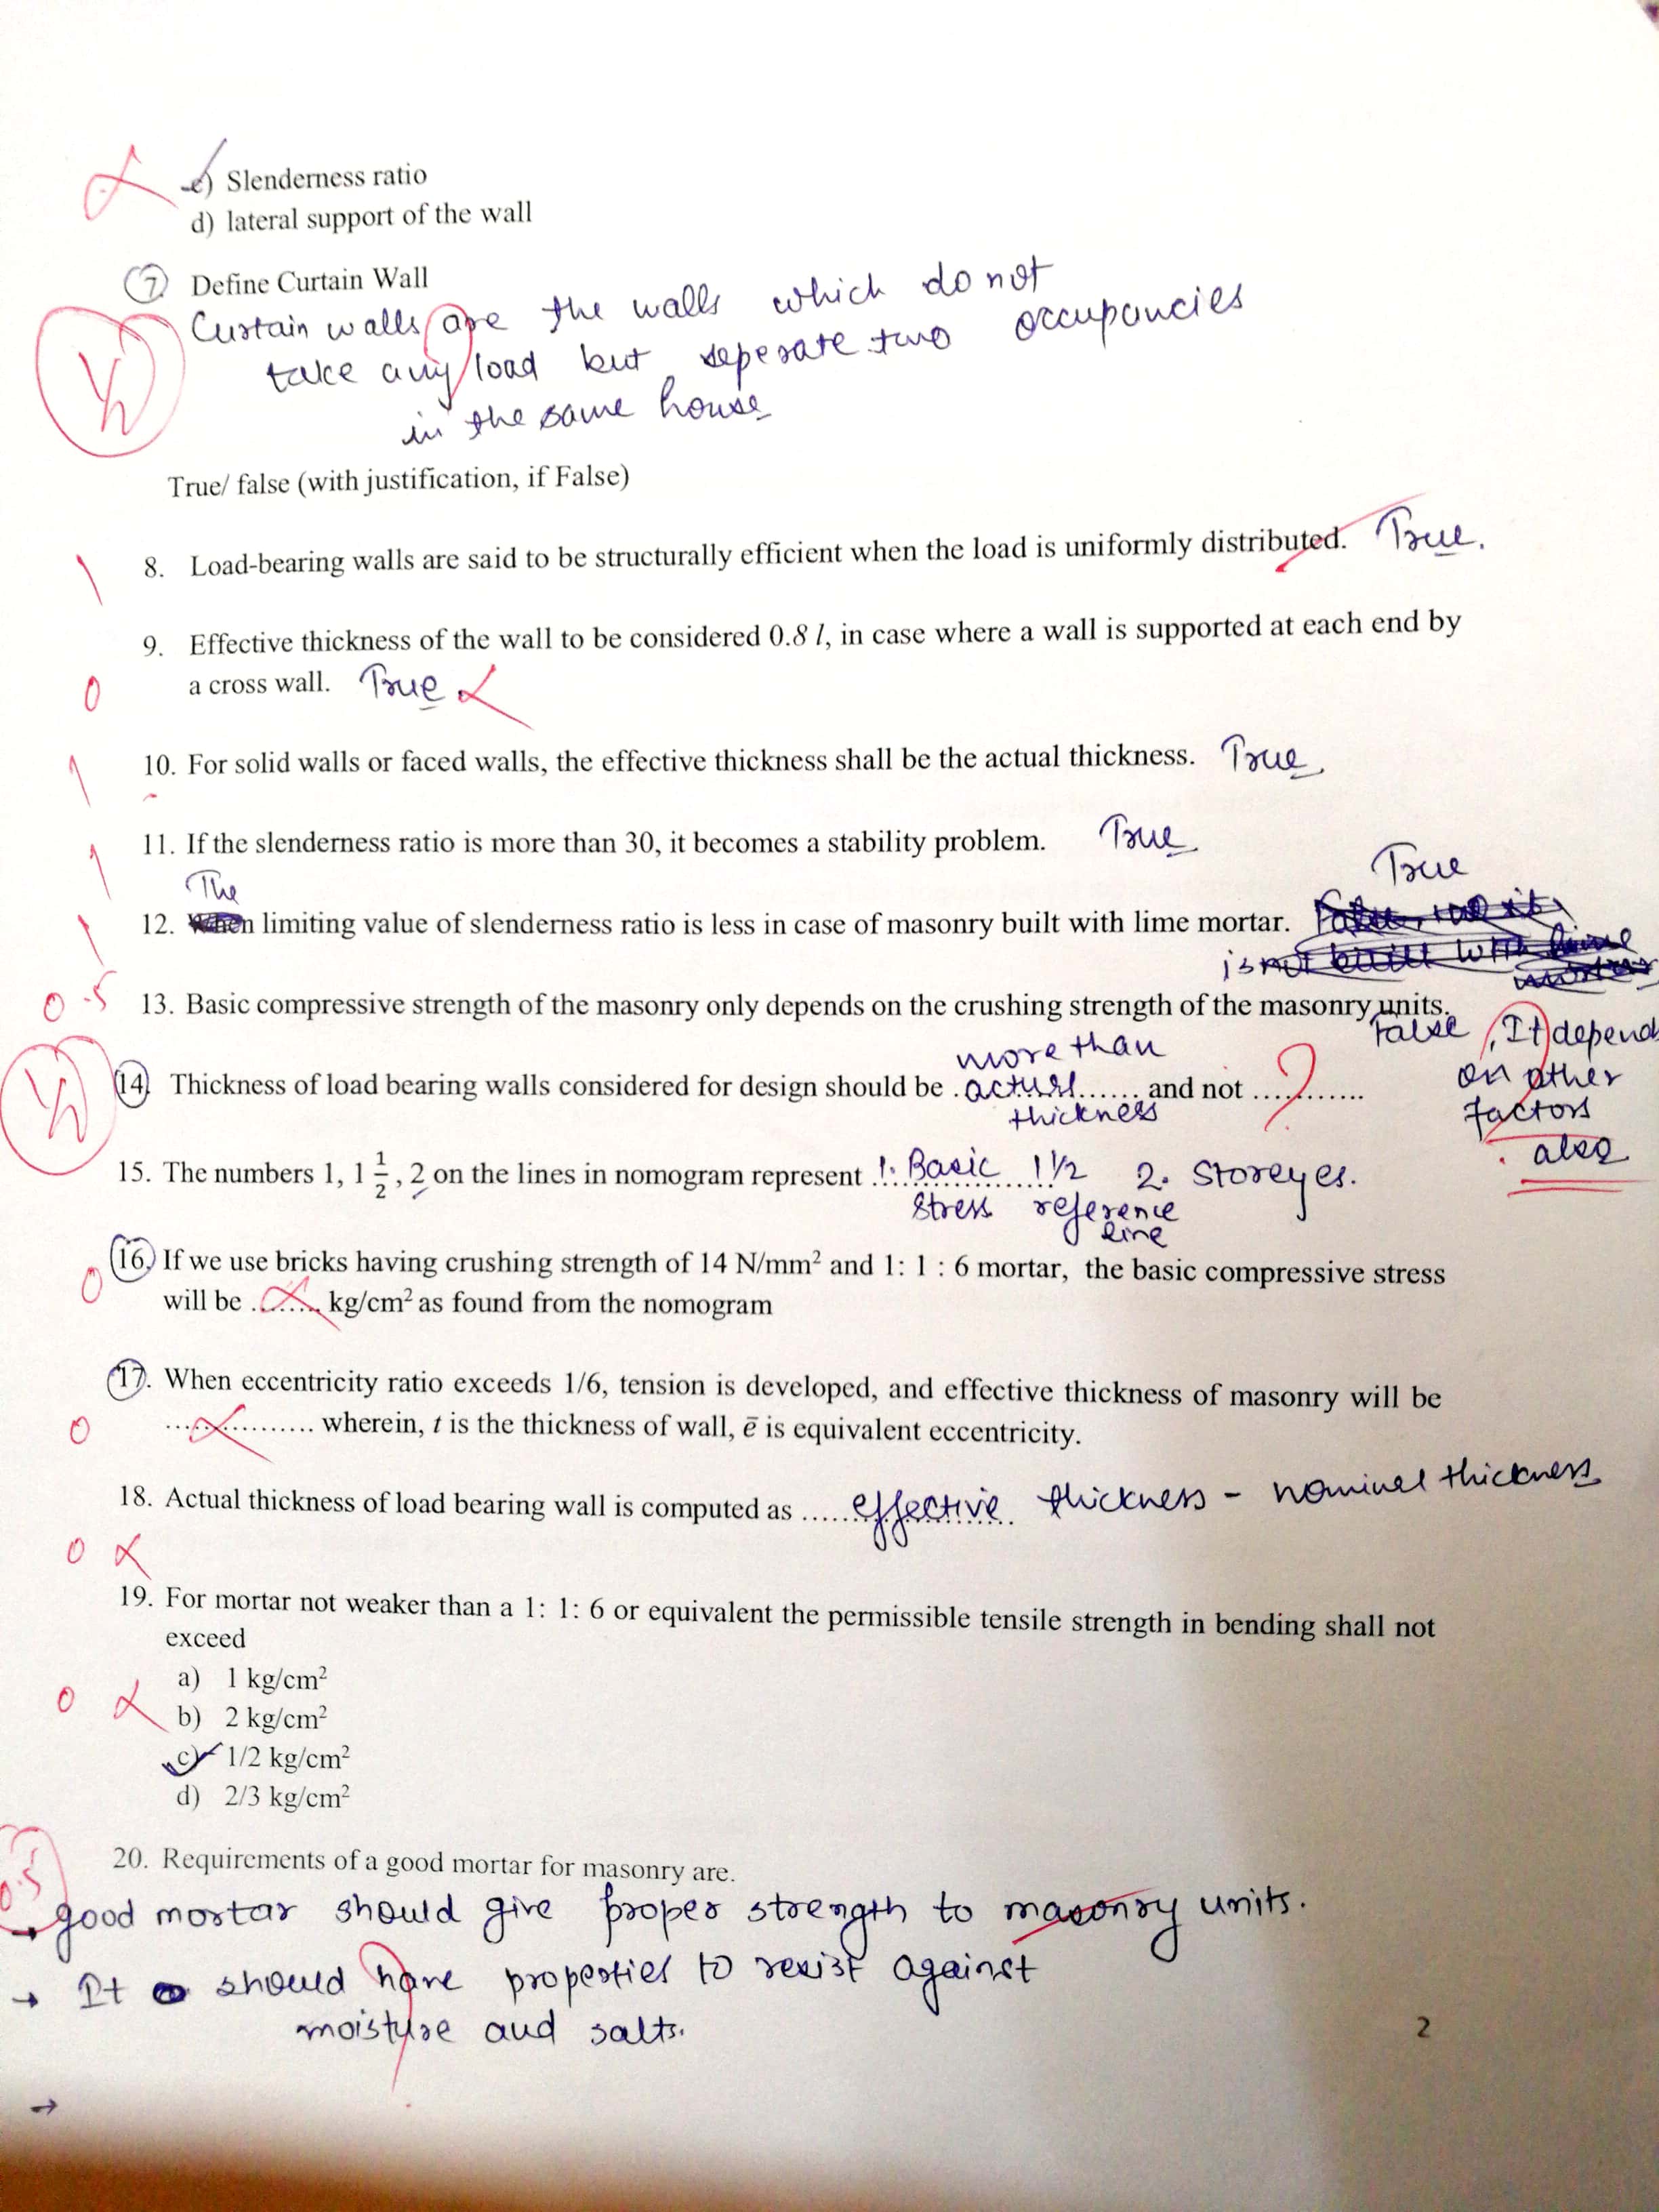 c) Slenderness ratio
d) lateral support of the wall
7. Define Curtain Wall
Curtain walls are the walls which do not
take any load but seperate two occupancies
in the same house
½
True/ false (with justification, if False)
1 8. Load-bearing walls are said to be structurally efficient when the load is uniformly distributed. True.
9. Effective thickness of the wall to be considered 0.8 l, in case where a wall is supported at each end by
0 a cross wall. True
1 10. For solid walls or faced walls, the effective thickness shall be the actual thickness. True
1 11. If the slenderness ratio is more than 30, it becomes a stability problem. True
The True
1 12. When limiting value of slenderness ratio is less in case of masonry built with lime mortar.
is not built with lime
0.5 13. Basic compressive strength of the masonry only depends on the crushing strength of the masonry units.
False, It depend
on other
factors
also
more than
½ 14. Thickness of load bearing walls considered for design should be . actual...... and not ............ ?
thickness
15. The numbers 1, 1 1/2, 2 on the lines in nomogram represent 1. Basic 1 1/2 2. Storeyes.
Stress reference
line
16. If we use bricks having crushing strength of 14 N/mm² and 1: 1 : 6 mortar, the basic compressive stress
0 will be ........ kg/cm² as found from the nomogram
17. When eccentricity ratio exceeds 1/6, tension is developed, and effective thickness of masonry will be
0 ............... wherein, t is the thickness of wall, ē is equivalent eccentricity.
18. Actual thickness of load bearing wall is computed as ..... effective thickness - nominel thickness
0
19. For mortar not weaker than a 1: 1: 6 or equivalent the permissible tensile strength in bending shall not
exceed
a) 1 kg/cm²
0 b) 2 kg/cm²
c) 1/2 kg/cm²
d) 2/3 kg/cm²
20. Requirements of a good mortar for masonry are.
0.5
→ good mortar should give proper strength to masonry units.
→ It should have properties to resist against
moisture and salts.
2
→